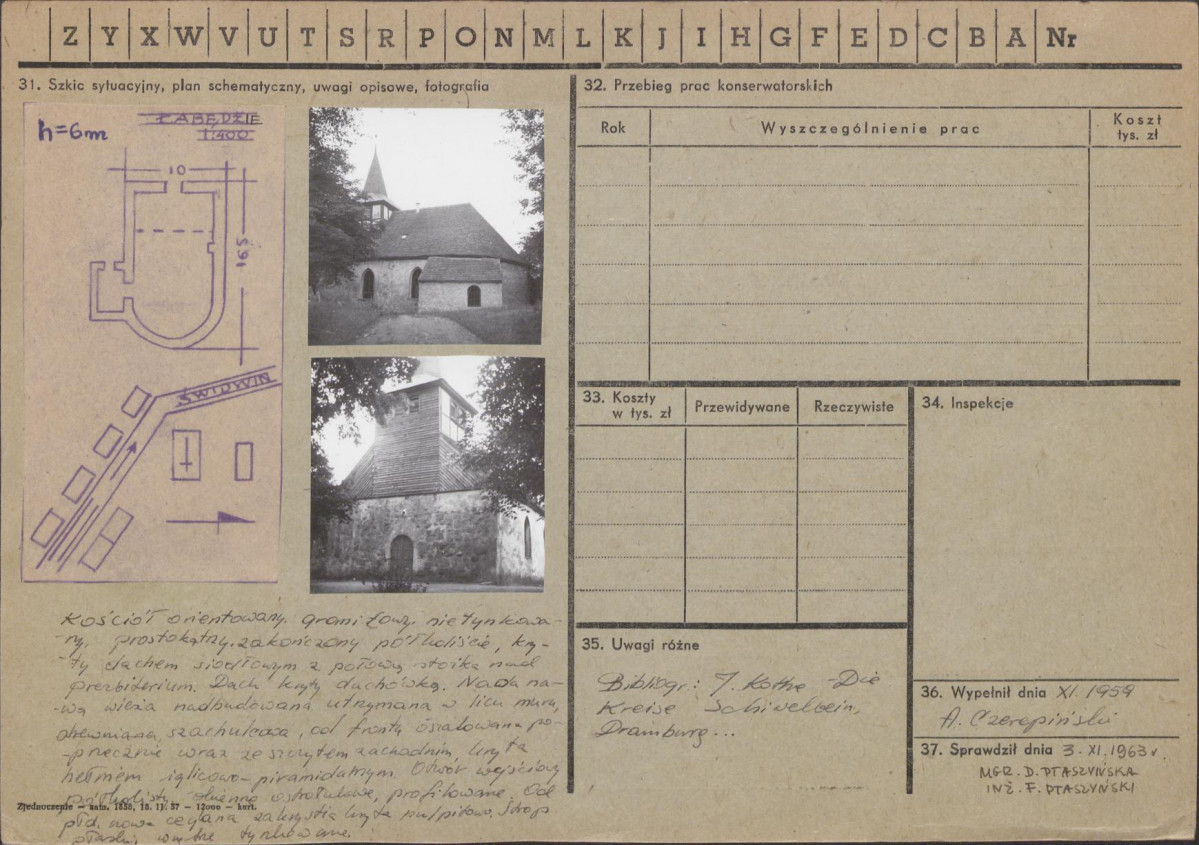 Z Y X W V U T S R P O N M L K J I H G F E D C B A Nr
31. Szkic sytuacyjny, plan schematyczny, uwagi opisowe, fotografia
h=6m
ŁABĘDZIE
1:400
10
16,5
ŚWIDWIN
Kościół orientowany, granitowy nietynkowa-
-ny, prostokątny, zakończony półkoliście, kry-
-ty dachem siodłowym z połową stożka nad
prezbiterium. Dach kryty dachówką. Nad na-
-wą wieża nadbudowana utrzymana w licu muru,
drewniana, szachulcowa, od frontu oszalowana po-
-przecznie wraz ze szczytem zachodnim, kryta
hełmem iglicowo-piramidalnym. Otwór wejściowy
półkolisty, okienne ostrołukowe, profilowane. Od
płd. nowa ceglana zakrystia kryta pulpitowo, strop
płaski, wnętrze tynkowane.
Zjednoczenie — zam. 1856, 16. 11. 57 — 12000 — kart.
32. Przebieg prac konserwatorskich
Rok
Wyszczególnienie prac
Koszt
tys. zł
33. Koszty
w tys. zł
Przewidywane
Rzeczywiste
34. Inspekcje
35. Uwagi różne
Bibliogr.: J. Kothe - Die
Kreise Schivelbein,
Dramburg...
36. Wypełnił dnia XI. 1959
A. Czerepiński
37. Sprawdził dnia 3. XI. 1963 r.
MGR. D. PTASZYŃSKA
INŻ. F. PTASZYŃSKI